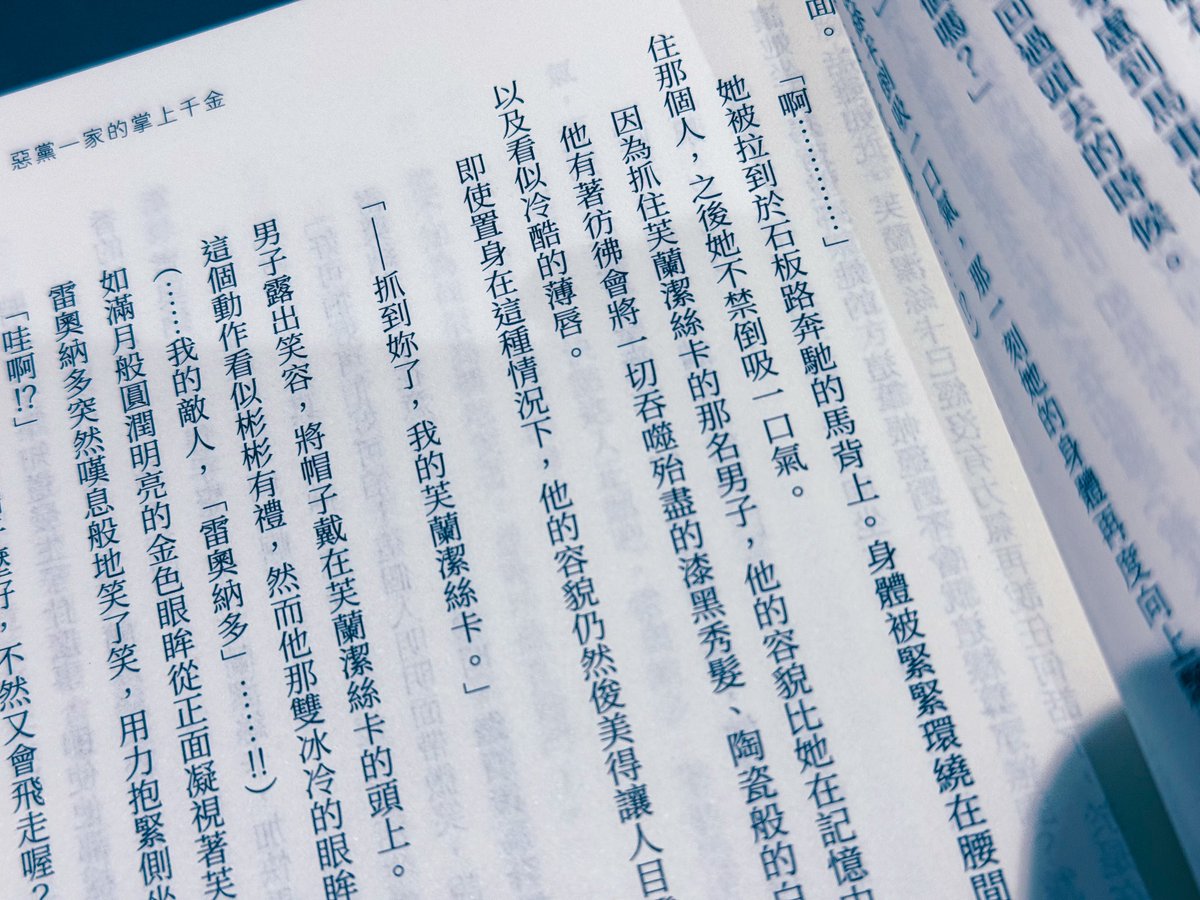 惡黨一家的掌上千金
慮到馬車
回過頭去的時候。
嗎？」
口氣，那一刻她的身體再度向上
面。
「啊…………」
她被拉到於石板路奔馳的馬背上。身體被緊緊環繞在腰間
住那個人，之後她不禁倒吸一口氣。
因為抓住芙蘭潔絲卡的那名男子，他的容貌比她在記憶中
他有著彷彿會將一切吞噬殆盡的漆黑秀髮、陶瓷般的白
以及看似冷酷的薄唇。
即使置身在這種情況下，他的容貌仍然俊美得讓人目
「——抓到妳了，我的芙蘭潔絲卡。」
男子露出笑容，將帽子戴在芙蘭潔絲卡的頭上。
這個動作看似彬彬有禮，然而他那雙冰冷的眼眸
（……我的敵人，「雷奧納多」……!!）
如滿月般圓潤明亮的金色眼眸從正面凝視著芙
雷奧納多突然嘆息般地笑了笑，用力抱緊側坐
「哇啊!?」
好，不然又會飛走喔？